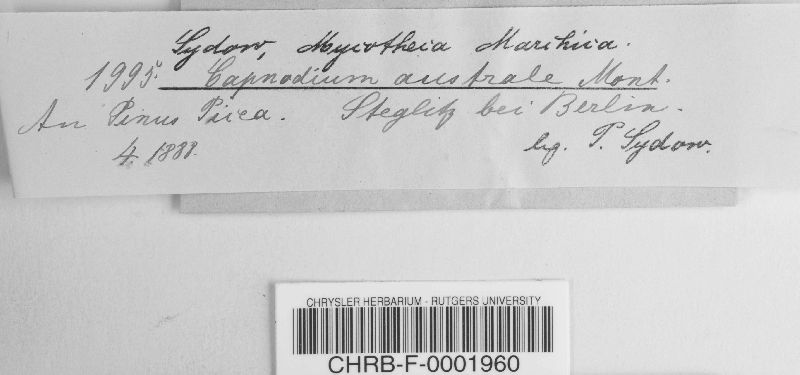 Sydow, Mycotheca Marchica.
1995. Capnodium australe Mont.
An Pinus Picea. Steglitz bei Berlin.
4. 1888. lg. P. Sydow.
CHRYSLER HERBARIUM - RUTGERS UNIVERSITY
CHRB-F-0001960